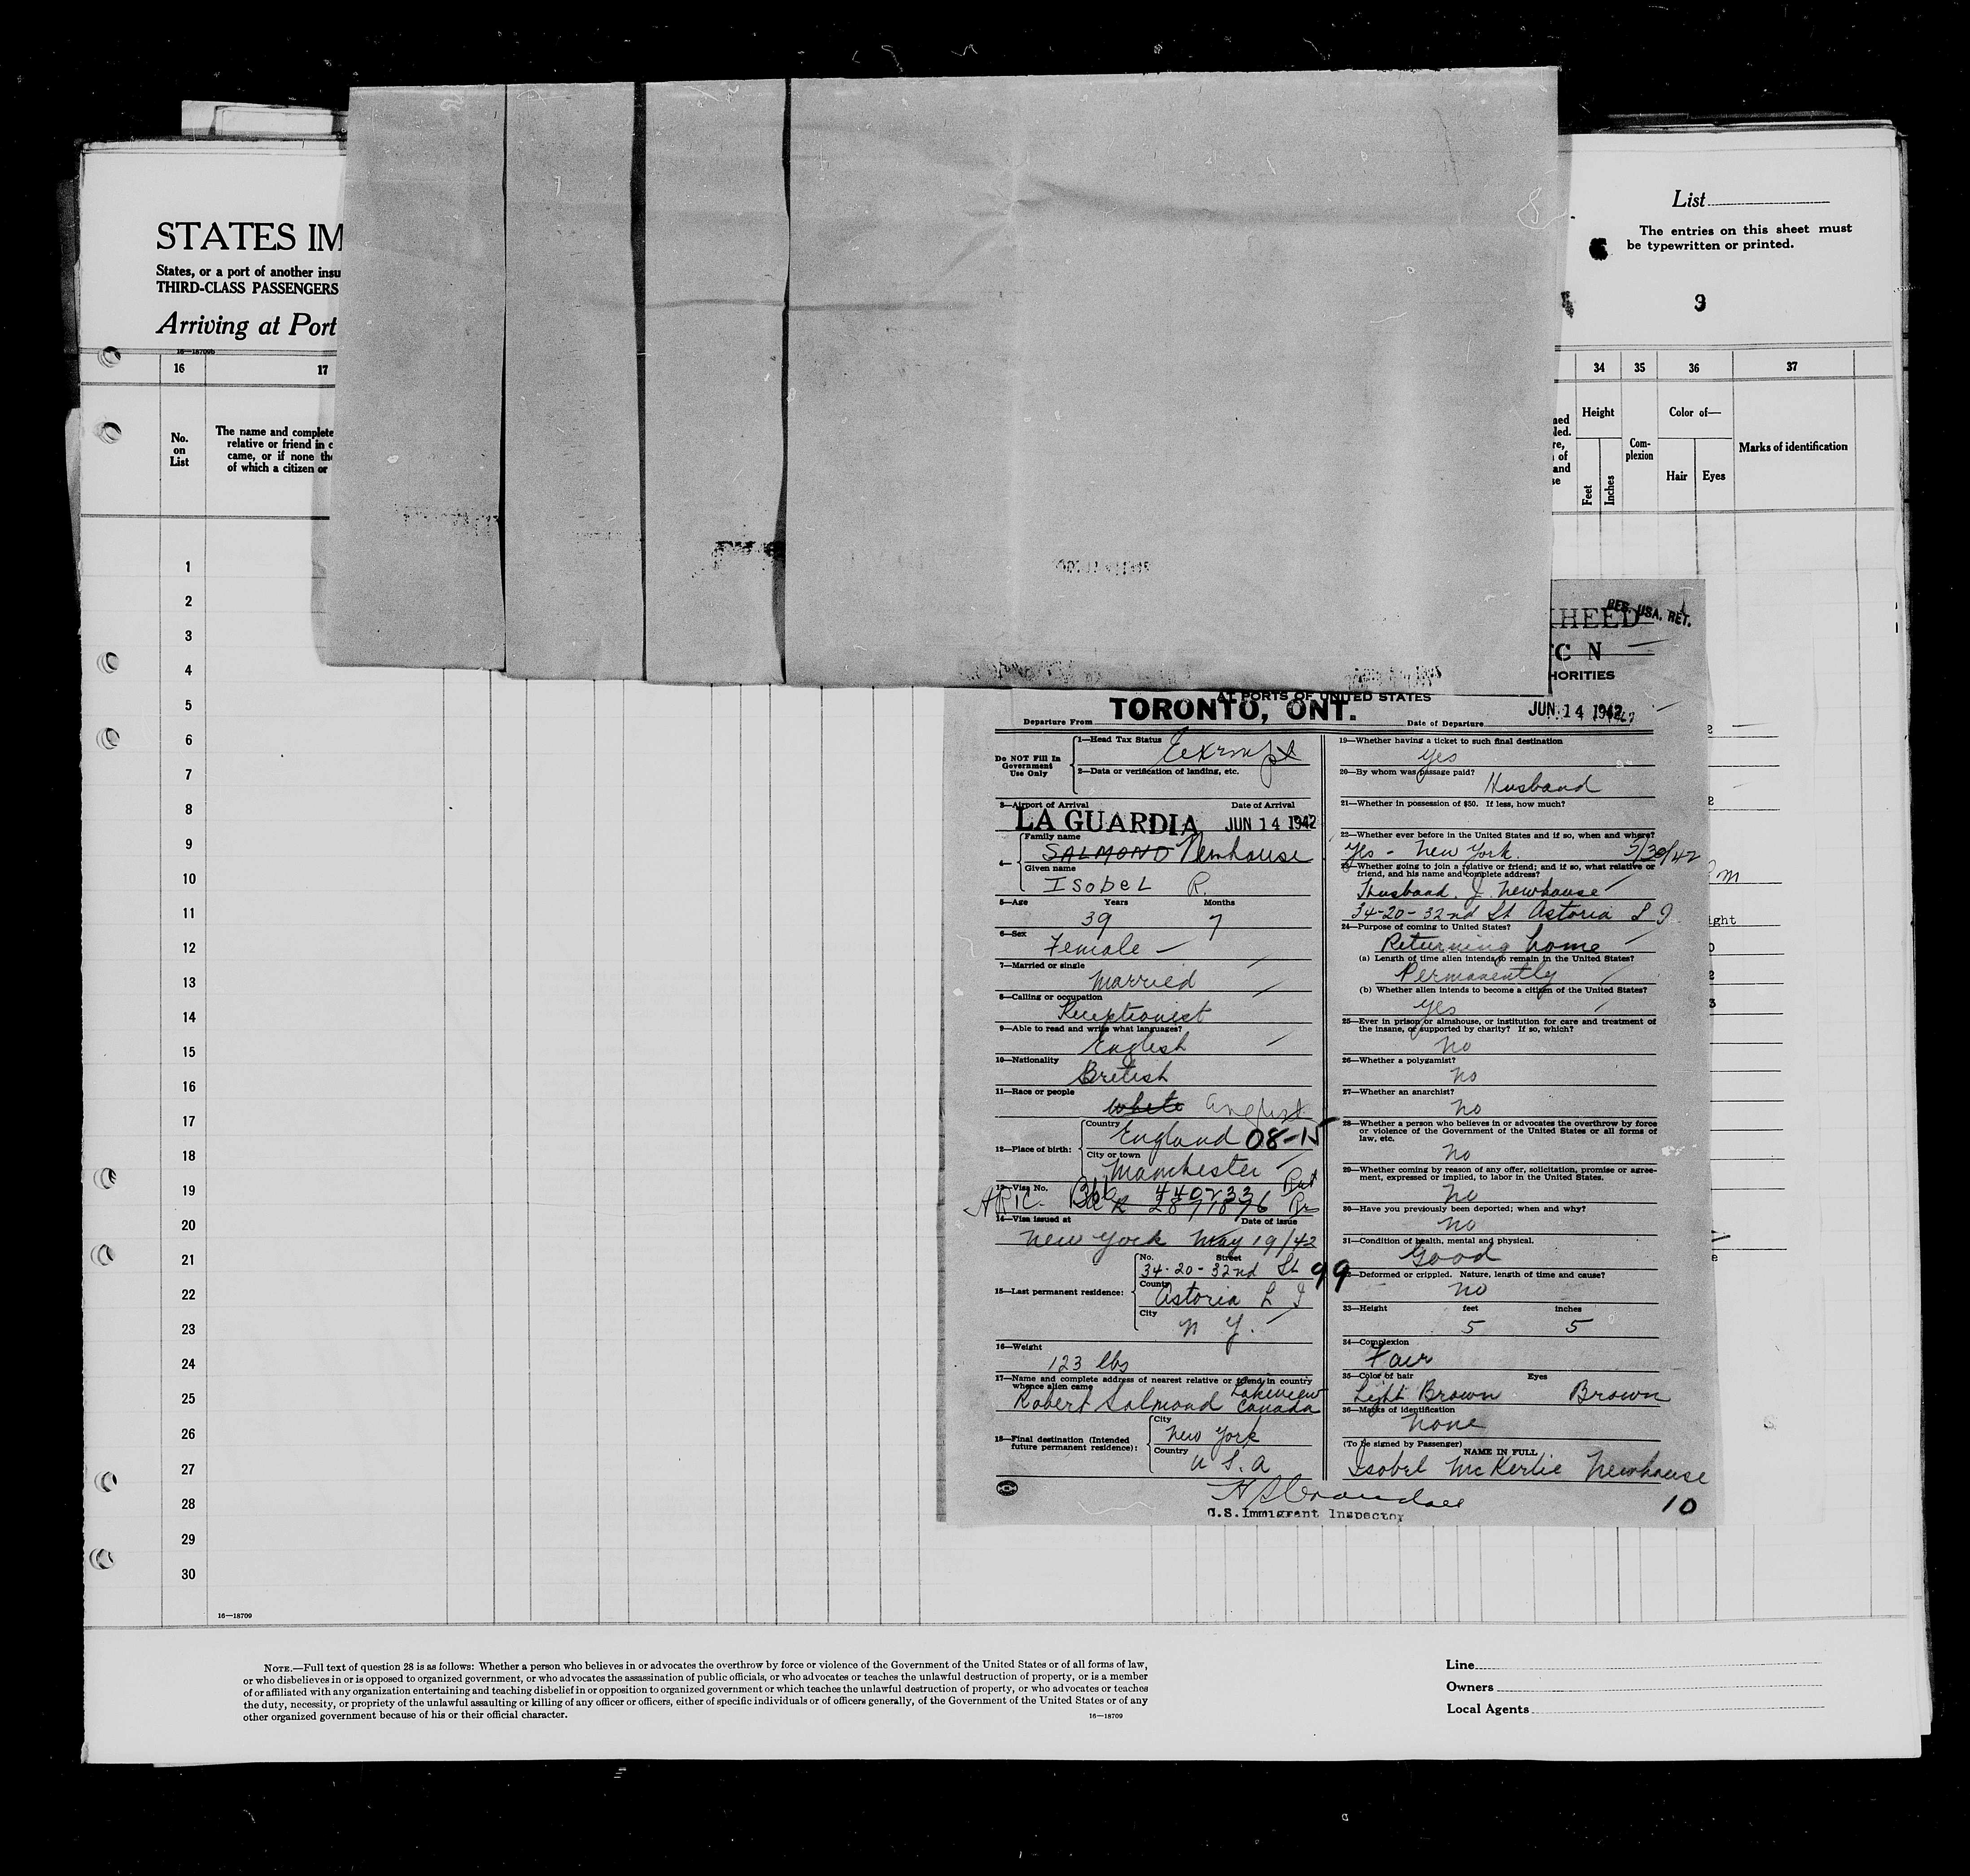 STATES IM
States, or a port of another insu
THIRD-CLASS PASSENGERS
Arriving at Port
16—18709b
List
The entries on this sheet must
be typewritten or printed.
9
16 17
No.
on
List
The name and complete
relative or friend in c
came, or if none the
of which a citizen or
34 35 36 37
Height
Feet
Inches
Com-
plexion
Color of—
Hair Eyes
Marks of identification
1
2
3
4
5
6
7
8
9
10
11
12
13
14
15
16
17
18
19
20
21
22
23
24
25
26
27
28
29
30
16—18709
RES. USA. RET.
HEED
C N
HORITIES
AT PORTS OF UNITED STATES
Departure From TORONTO, ONT. Date of Departure JUN 14 1942
Do NOT Fill In
Government
Use Only
1—Head Tax Status Exempt
2—Data or verification of landing, etc.
3—Airport of Arrival Date of Arrival
LA GUARDIA JUN 14 1942
4— Family name
SALMOND Newhouse
Given name
Isobel R.
5—Age Years Months
39 7
6—Sex
Female
7—Married or single
Married
8—Calling or occupation
Receptionist
9—Able to read and write what languages?
English
10—Nationality
British
11—Race or people
white English
12—Place of birth:
Country
England 08-15
City or town
Manchester
13—Visa No. 440233
ARIC. 2871876
14—Visa issued at Date of issue
New York May 19/42
15—Last permanent residence:
No. Street
34-20-32nd St 99
County
Astoria L I
City
N Y.
16—Weight
123 lbs
17—Name and complete address of nearest relative or friend in country
whence alien came
Robert Salmond Lakeview
Canada
18—Final destination (Intended
future permanent residence):
City
New York
Country
U.S.A
U.S. Immigrant Inspector
19—Whether having a ticket to such final destination
Yes
20—By whom was passage paid?
Husband
21—Whether in possession of $50. If less, how much?
22—Whether ever before in the United States and if so, when and where?
Yes - New York. 5/30/42
23—Whether going to join a relative or friend; and if so, what relative or
friend, and his name and complete address?
Husband. J. Newhouse
34-20-32nd St Astoria L I
24—Purpose of coming to United States?
Returning home
(a) Length of time alien intends to remain in the United States?
Permanently
(b) Whether alien intends to become a citizen of the United States?
Yes
25—Ever in prison or almshouse, or institution for care and treatment of
the insane, or supported by charity? If so, which?
No
26—Whether a polygamist?
No
27—Whether an anarchist?
No
28—Whether a person who believes in or advocates the overthrow by force
or violence of the Government of the United States or all forms of
law, etc.
No
29—Whether coming by reason of any offer, solicitation, promise or agree-
ment, expressed or implied, to labor in the United States.
No
30—Have you previously been deported; when and why?
No
31—Condition of health, mental and physical.
Good
32—Deformed or crippled. Nature, length of time and cause?
No
33—Height feet inches
5 5
34—Complexion
Fair
35—Color of hair Eyes
Light Brown Brown
36—Marks of identification
None
(To be signed by Passenger) NAME IN FULL
Isobel McKerlie Newhouse
10
NOTE.—Full text of question 28 is as follows: Whether a person who believes in or advocates the overthrow by force or violence of the Government of the United States or of all forms of law,
or who disbelieves in or is opposed to organized government, or who advocates the assassination of public officials, or who advocates or teaches the unlawful destruction of property, or is a member
of or affiliated with any organization entertaining and teaching disbelief in or opposition to organized government or which teaches the unlawful destruction of property, or who advocates or teaches
the duty, necessity, or propriety of the unlawful assaulting or killing of any officer or officers, either of specific individuals or of officers generally, of the Government of the United States or of any
other organized government because of his or their official character.
16—18709
Line
Owners
Local Agents